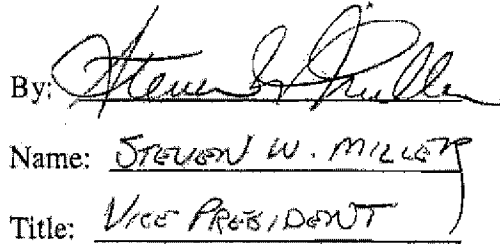 By: Steven W. Miller
Name: STEVEN W. MILLER
Title: VICE PRESIDENT